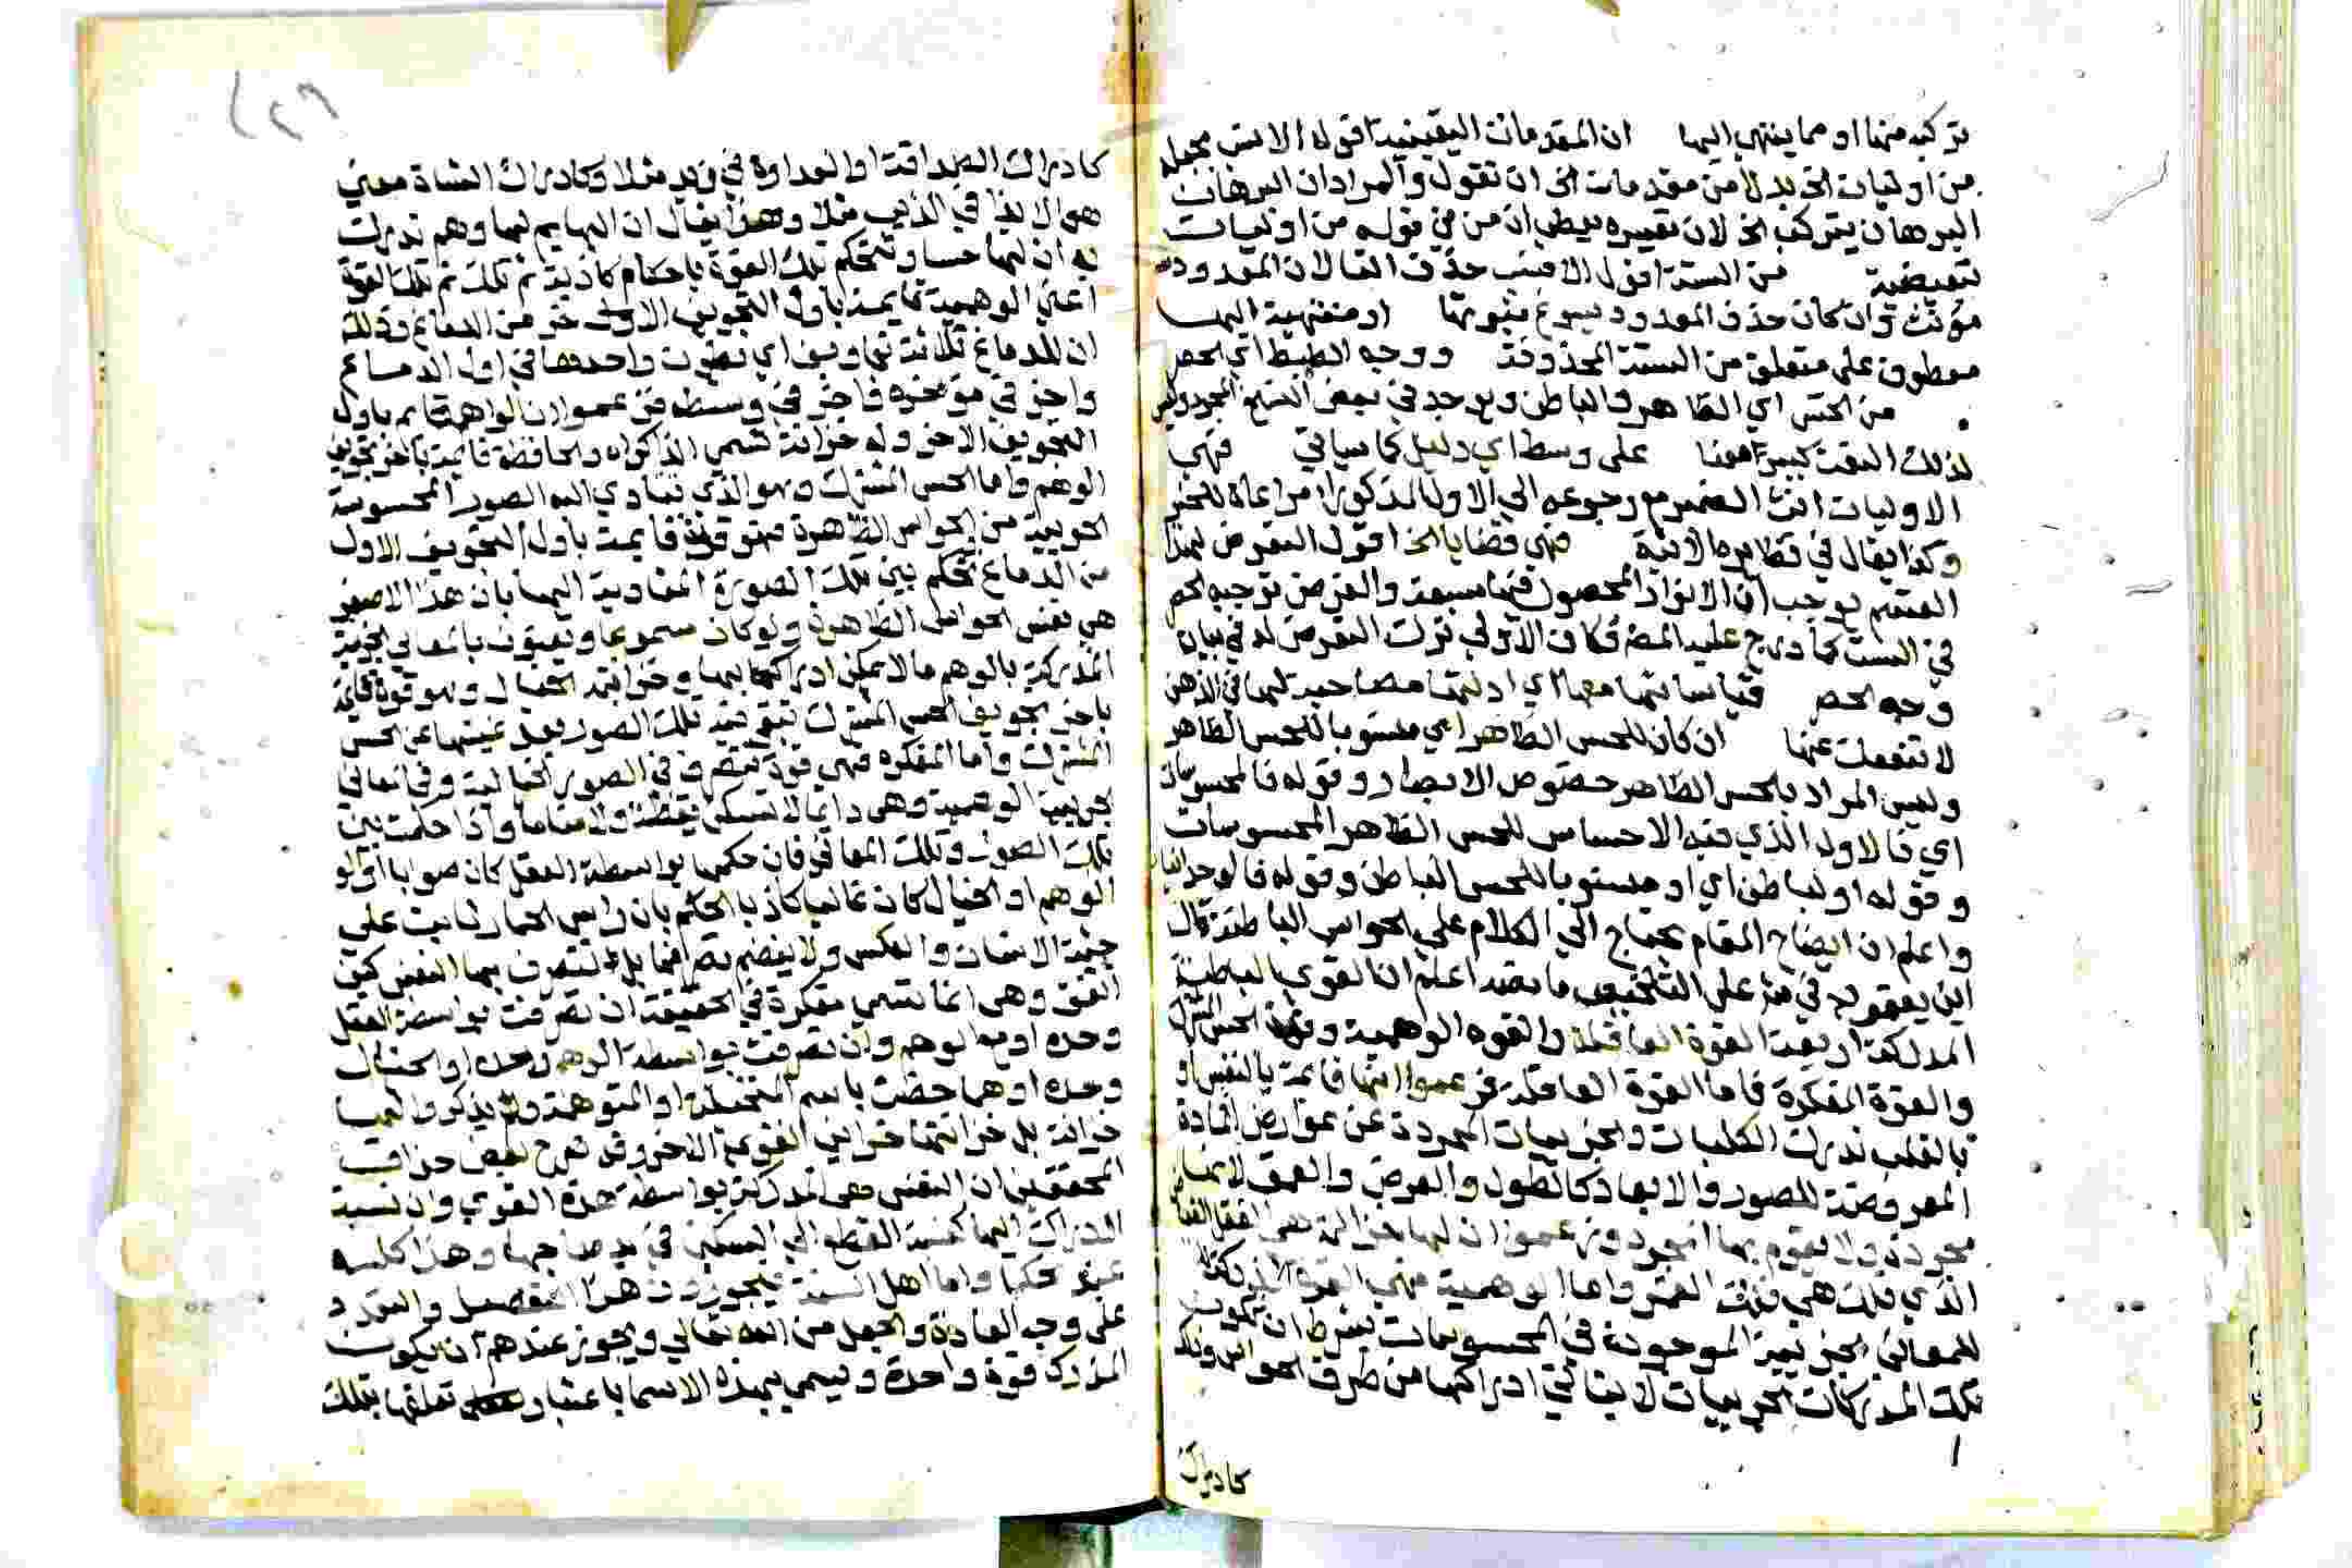 تركبه منها او مما ينتهي اليها ان المقدمات اليقينية اقوله الانسب مجعله
من اوليات الخ بدلا من مقدمات الخ ان تقول والمراد ان البرهان
البرهان يتركب الخ لان تقييره يعطي ان من في قوله من اوليات
تبعيضية من الستة اقول الانسب حذف التا لان المعدود
مؤنث وان كان حذف المعدود يسوغ ثبوتها او منتهية اليها
معطوف على متعلق من الستة المحذوفة ووجه الضبط اي الحصر
من الحس اي الظاهر والباطن ويوجد في بعض النسخ
لذلك البعث كبير معنا على وسط اي دليل كما سياتي فهي
الاوليات انث الضمير مع رجوعه الى الاول المذكور مراعاة للخبر
وكذا يقال في نظايره الاتية فهي قضايا الخ اقول التعرض لهذا
القسم يوجب ان الافراد المحصول فيها سبعة والغرض توجيه الحصر
في الست كما درج عليه المص فكان الاولى ترك التعرض له في بيان
وجه الحصر قياساتها معها اي ادلتها مصاحبة لها في الذهن
لا تنفعك عنها ان كان للحس الظاهر اي منسوبا للحس الظاهر
وليس المراد بالحس الظاهر خصوص الابصار وقوله فالمحسوسات
اي فالاول الذي فيه الاحساس للحس الظاهر المحسوسات
وقوله او لباطن اي او منسوبا للحس الباطن وقوله فالوجدانيات
واعلم ان ايضاح المقام يحتاج الى الكلام على الحواس الباطنة قال
ابن يعقوب في شرحه على التلخيص ما نصه اعلم ان القوي الباطنية
المدركة اربعة القوة العاقلة والقوه الوهمية وقوة الحس المشترك
والقوة المفكرة فاما القوة العاقلة فزعموا انها قائمة بالنفس او
بالقلب تدرك الكليات والجزييات المجردة عن عوارض المادة
المعروضة للصور والابعاد كالطول والعرض والعمق لانها
مجردة ولا يقوم بها المجرد وزعموا ان لها خزانة هي العقل الفياض
الذي فلك هي فلك القمر واما الوهمية فهي القوة المدركة
للمعاني الجزيية الموجودة في المحسوسات بشرط ان تكون
تلك المدركات الجزييات لا يتاتى ادراكها من طرف الحواس وذلك
كادراك
كادراك الصداقة او العداوة في زيد مثلا وكادراك الشاة معنى
هو الايذا في الذيب مثلا وهذا يقال ان البهايم لها وهم تدرك
به ان لها حسا وتحكم تلك القوة باحكام كاذبة ثم تلك القوة
اعني الوهمية قايمة باول التجويف الاخر من الدماغ وذلك
ان للدماغ ثلاثة تجاويف اي بطون واحدها في اول الدماغ
واخر في مؤخره واخر في وسطه فزعموا ان الواهم قايم باول
التجويف الاخر وله خزانة تسمى الذاكراه والحافظة قايمة باخر تجويف
الوهم واما الحس المشترك وهو الذي تتادي اليه الصور المحسوسة
الجزيية من الحواس الظاهرة فهو قوة قايمة باول التجويف الاول
من الدماغ تحكم بين تلك الصورة المتادية اليها بان هذا الاصفر
هي نفس الحواس الظاهرة ولو كان مسموعا ويعنون بالمعاني الجزيية
المدركة بالوهم ما لا يمكن ادراكها بها وخزانته الخيال وهو قوة قايمة
باخر تجويف الحس المشترك تبقى فيه تلك الصور بعد غيبتها عن الحس
المشترك واما المفكره فهي قوة تتصرف في الصور الخيالية وفي المعاني
الجزيية الوهمية وهي دايما لا تسكن يقظة ولا مناما واذا حكمت بين
تلك الصور وتلك المعاني فان حكمها بواسطة العقل كان صوابا او لو
الوهم او الخيال كان غالبا كاذبا كالحكم بان راس الحمار ثابت على
جثة الانسان والعكس ولا ينضم تصرفها بل تتصرف بها النفس كيف
اتفق وهي انما تسمى مفكرة في الحقيقة ان تصرفت بواسطة العقل
وحده او مع الوهم وان تصرفت بواسطة الوهم وحده او الخيال
وحده او هما خصت باسم المتخيلة او المتوهمة ولم يذكروا لها
خزانة بل خزانتها خزاين القوى الاخر وقد صرح بعض حذاق
المحققين ان النفس هي المدركة بواسطة هذه القوي وان نسبة
الادراك اليها كنسبة القطع الى السكين في يد صاحبها وهذا كله
عند الحكما واما اهل السنة فيجوزون هذا التفصيل والتعدد
على وجه العادة والجعل من الله تعالى ويجوز عندهم ان يكون
المدرك قوة واحدة ويسمى بهذه الاسما باعتبار تعلقها بتلك